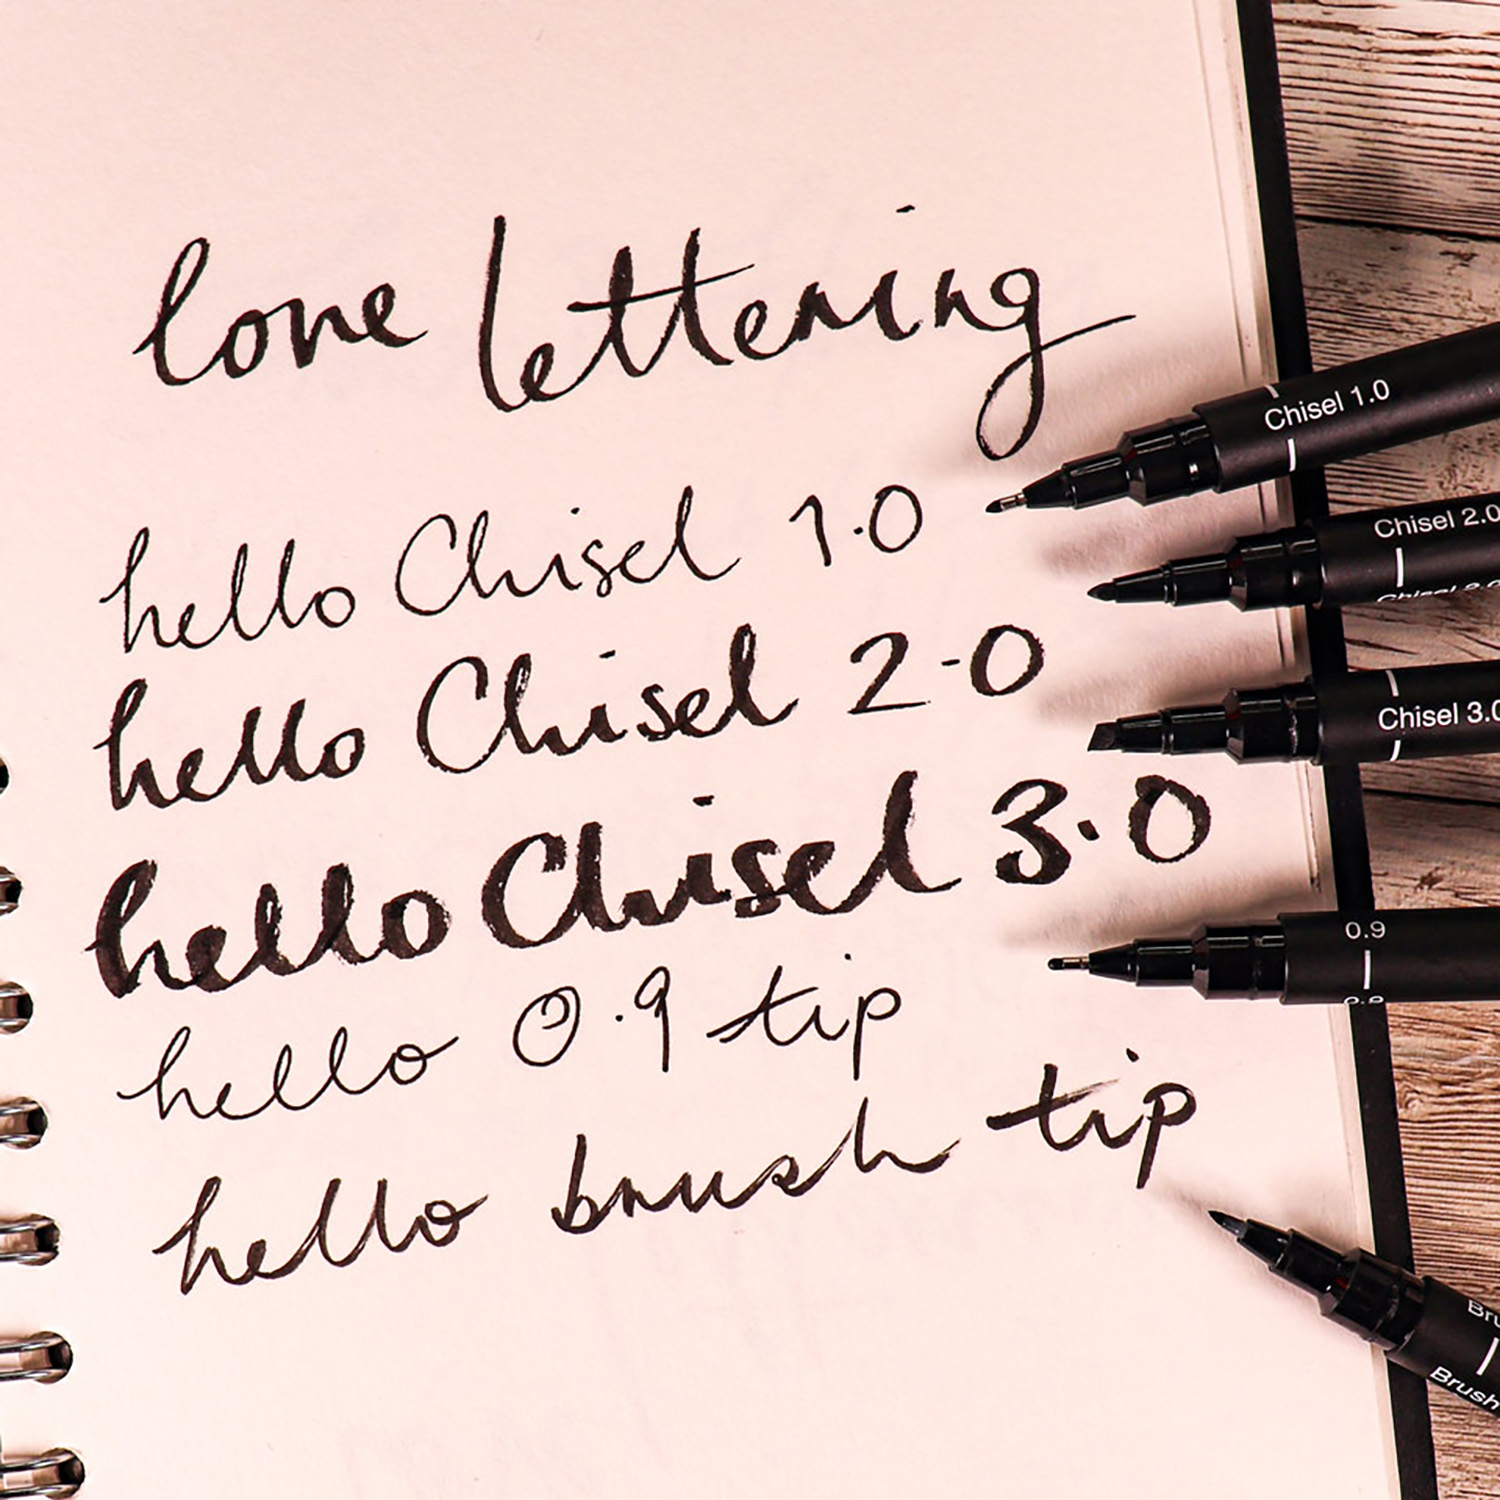 love lettering
hello Chisel 1.0
hello Chisel 2.0
hello Chisel 3.0
hello 0.9 tip
hello brush tip
Chisel 1.0
Chisel 2.0
Chisel 2.0
Chisel 3.0
0.9
0.9
Bru
Brush